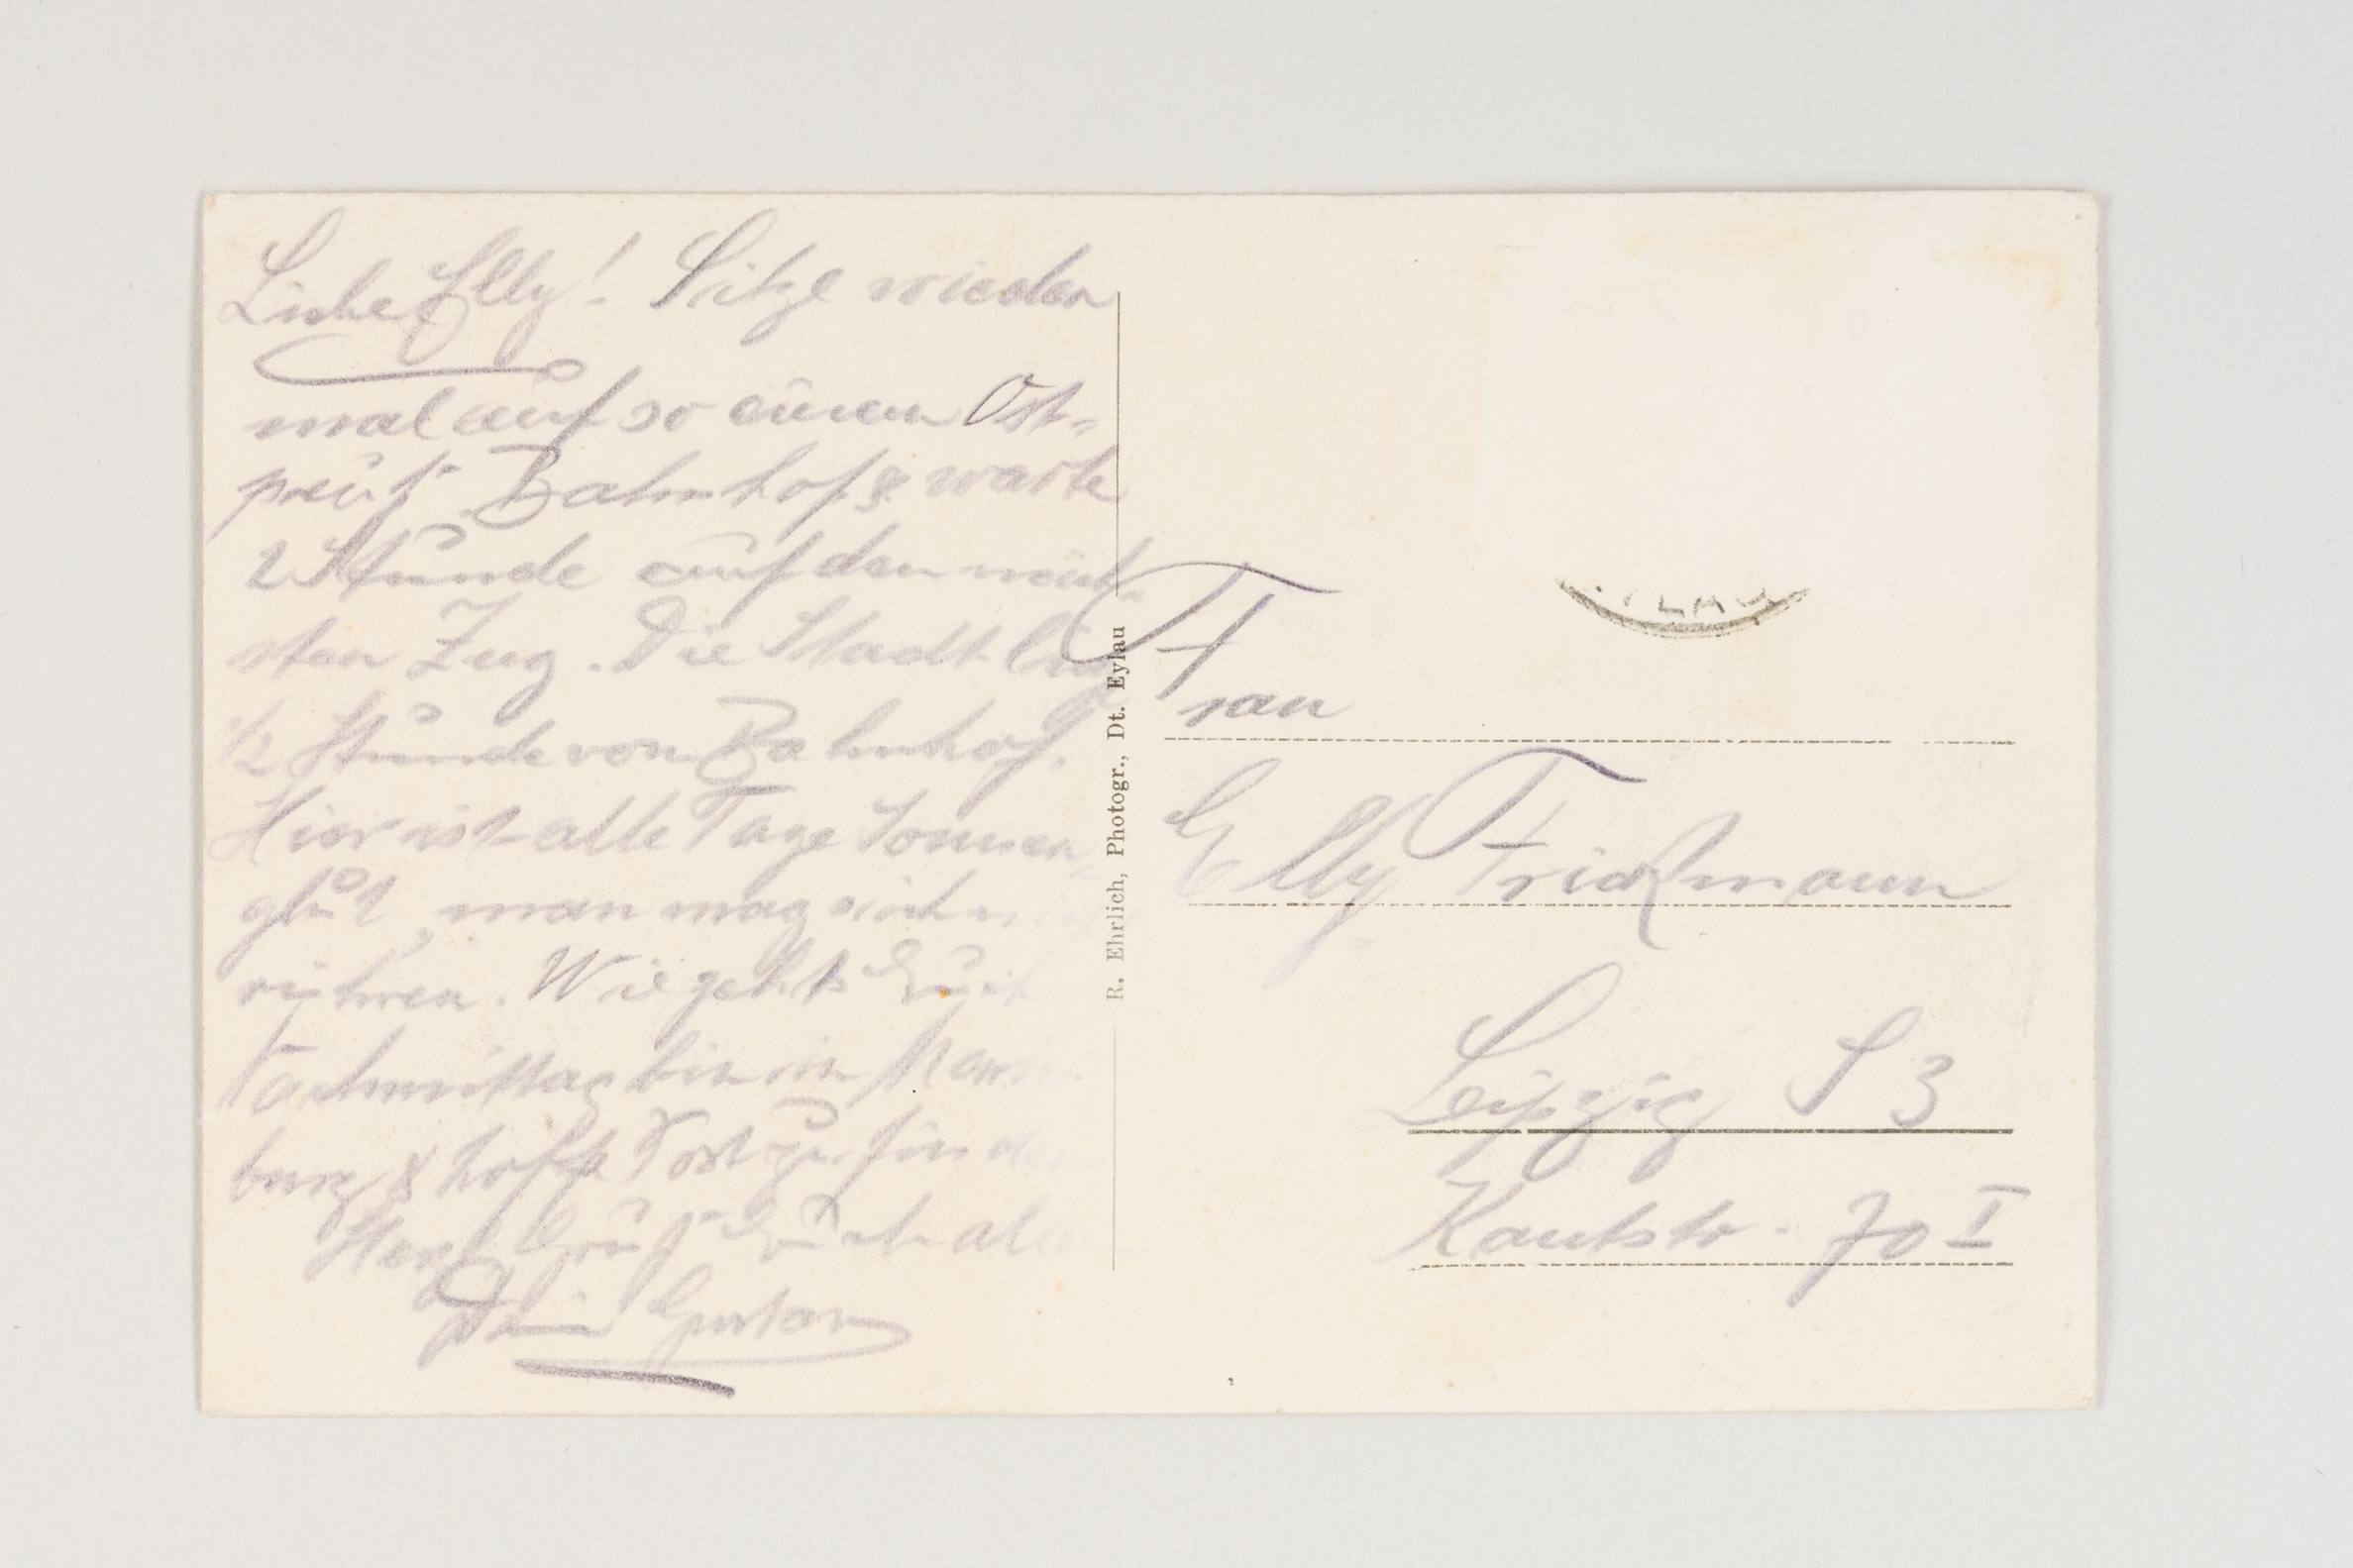 Liebe Elly! Sitze wieder
mal auf so einem Ost-
preuß. Bahnhof & warte
2 Stunde auf den näch-
sten Zug. Die Stadt liegt
1/2 Stunde vom Bahnhof.
Hier ist alle Tage Sonnen-
glut, man mag sich
rühren. Wie gehts Euch
Nachmittag bin in Marien
burg & hoffe Post zu finden
Herzl. Grüß Euch alle
Dein Gustav
R. Ehrlich, Photogr., Dt. Eylau
YLAU
Frau
Elly
Leipzig S 3
Kantstr. 70 I